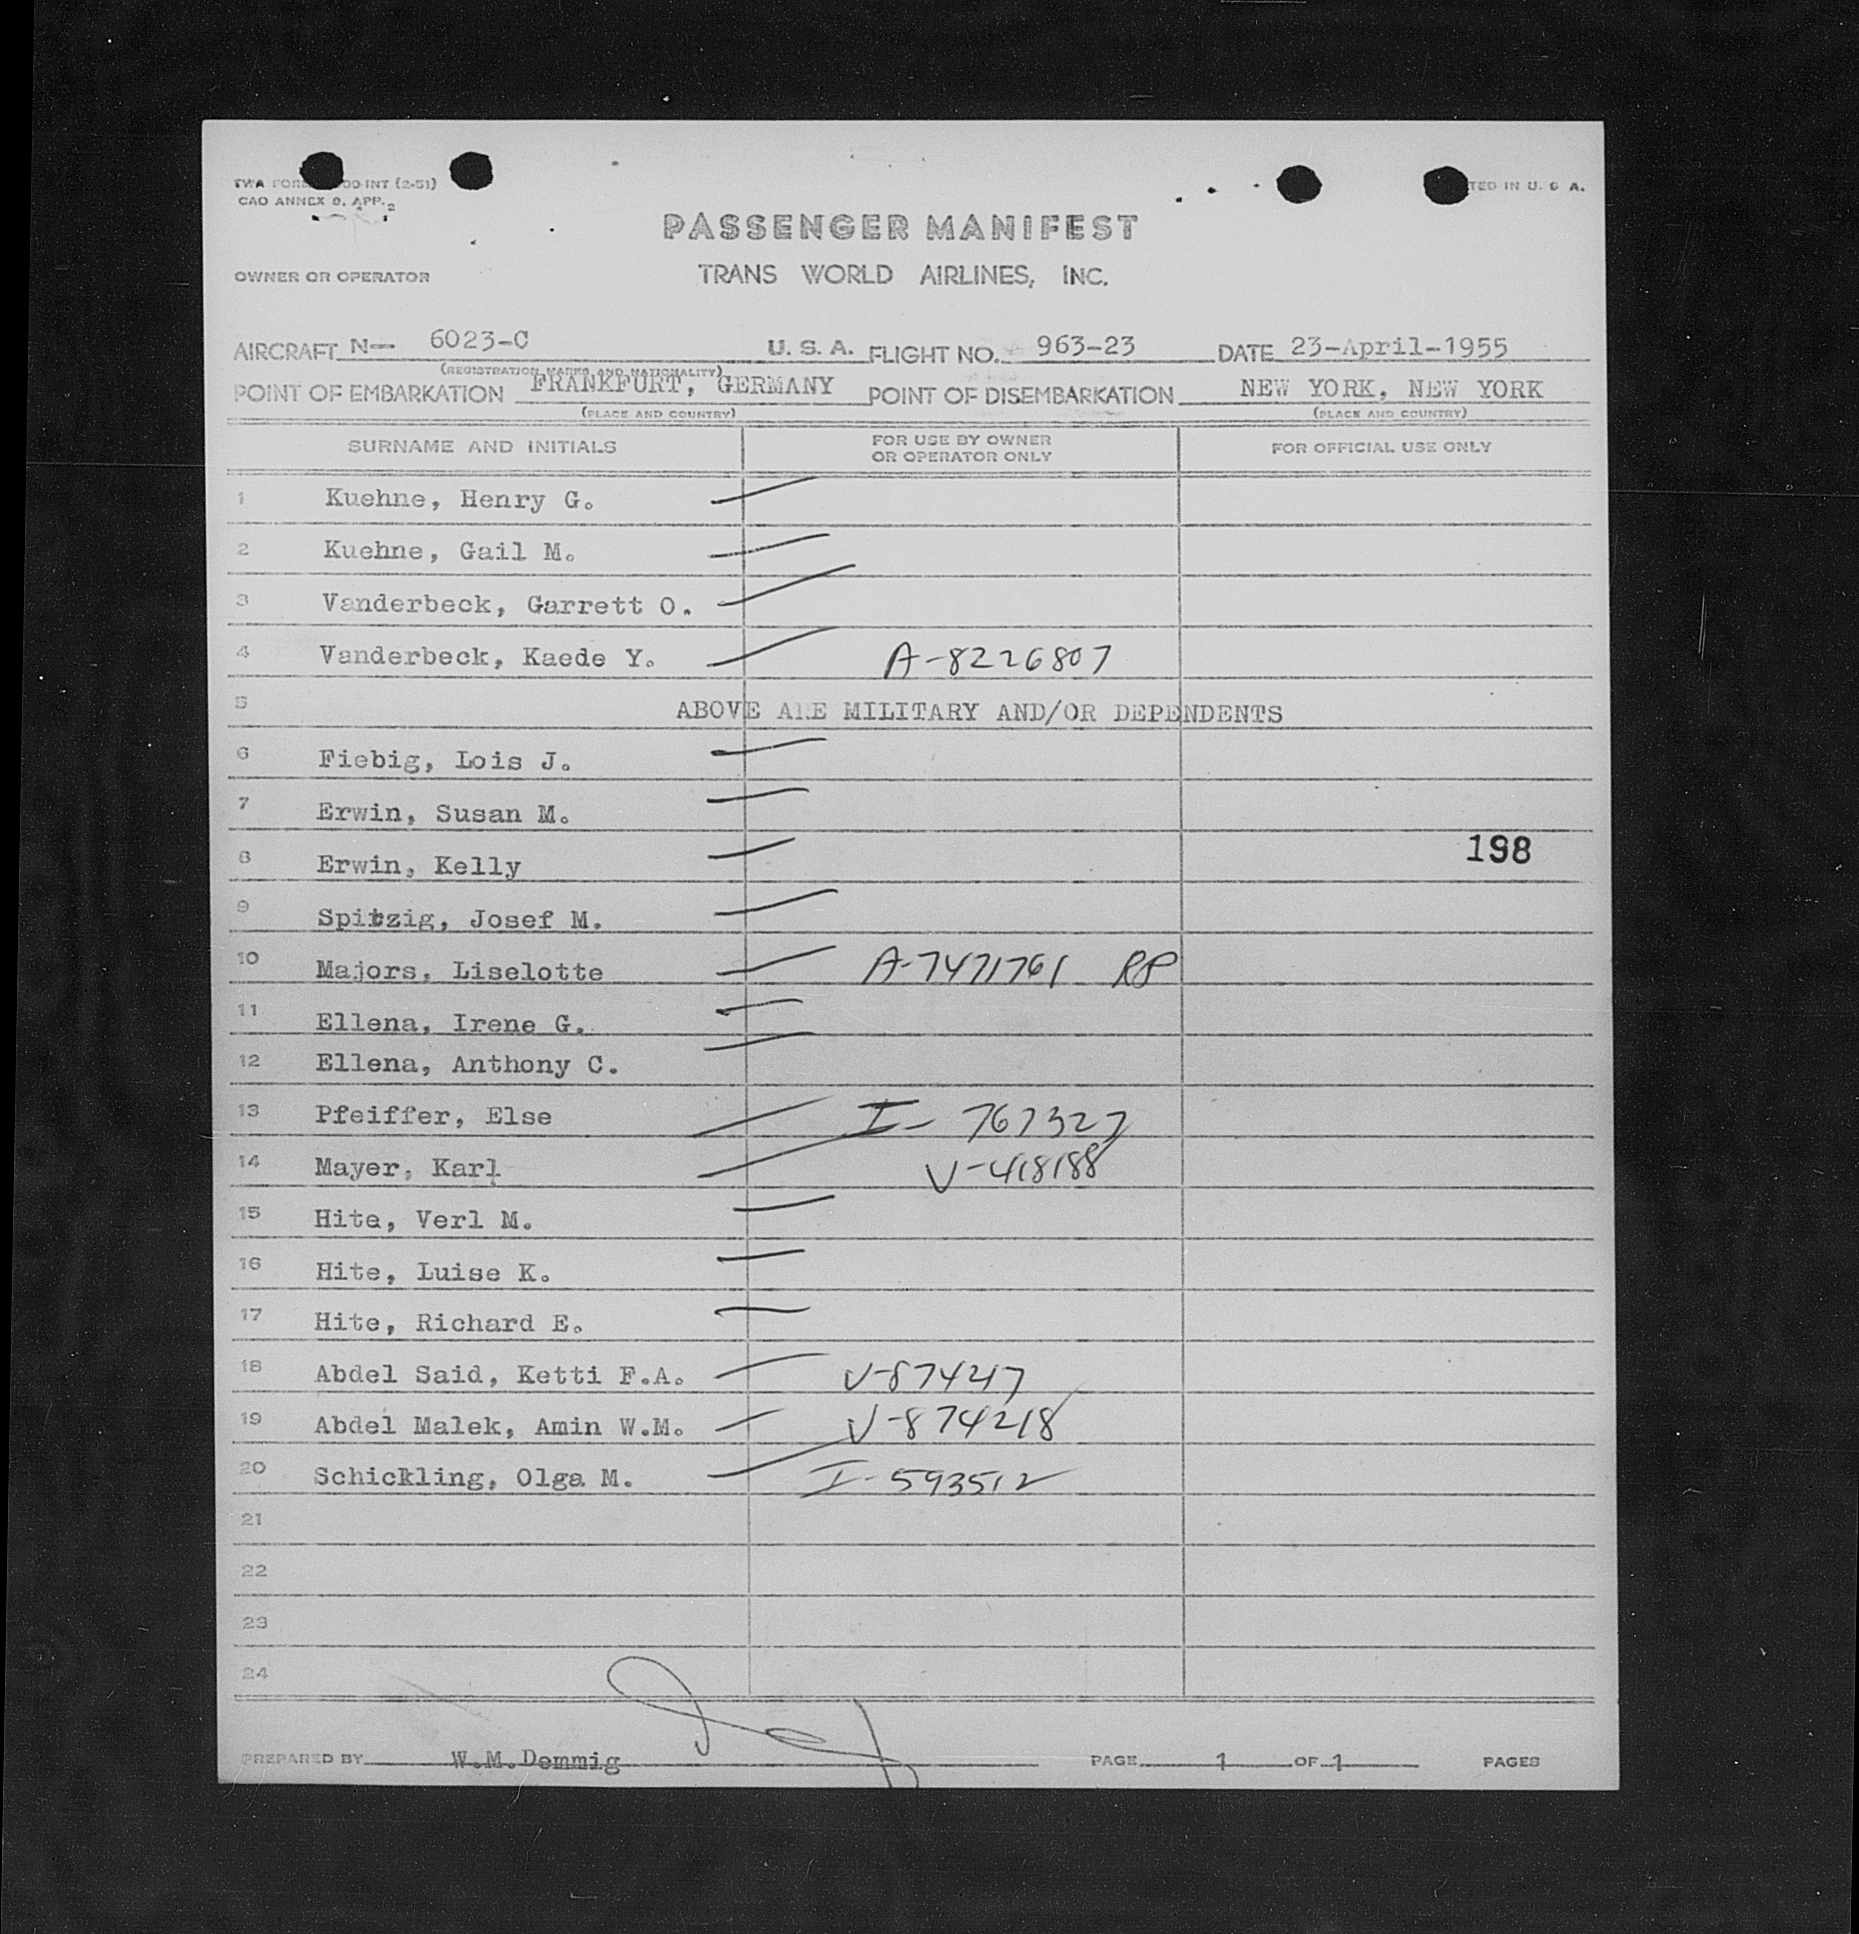 TWA FORM 00-INT (2-51)
TED IN U. S A.
CAO ANNEX 9, APP. 2
PASSENGER MANIFEST
OWNER OR OPERATOR
TRANS WORLD AIRLINES, INC.
AIRCRAFT N- 6023-C U. S. A. FLIGHT NO. 963-23 DATE 23-April-1955
(REGISTRATION MARKS AND NATIONALITY)
POINT OF EMBARKATION FRANKFURT, GERMANY POINT OF DISEMBARKATION NEW YORK, NEW YORK
(PLACE AND COUNTRY) (PLACE AND COUNTRY)
SURNAME AND INITIALS FOR USE BY OWNER OR OPERATOR ONLY FOR OFFICIAL USE ONLY
1 Kuehne, Henry G.
2 Kuehne, Gail M.
3 Vanderbeck, Garrett O.
4 Vanderbeck, Kaede Y. A-8226807
5 ABOVE ARE MILITARY AND/OR DEPENDENTS
6 Fiebig, Lois J.
7 Erwin, Susan M.
8 Erwin, Kelly 198
9 Spitzig, Josef M.
10 Majors, Liselotte A-7471761 RP
11 Ellena, Irene G.
12 Ellena, Anthony C.
13 Pfeiffer, Else I- 767327
14 Mayer, Karl V-418188
15 Hite, Verl M.
16 Hite, Luise K.
17 Hite, Richard E.
18 Abdel Said, Ketti F.A. V-874217
19 Abdel Malek, Amin W.M. V-874218
20 Schickling, Olga M. I-593512
21
22
23
24
PREPARED BY W.M.Demmig PAGE 1 OF 1 PAGES